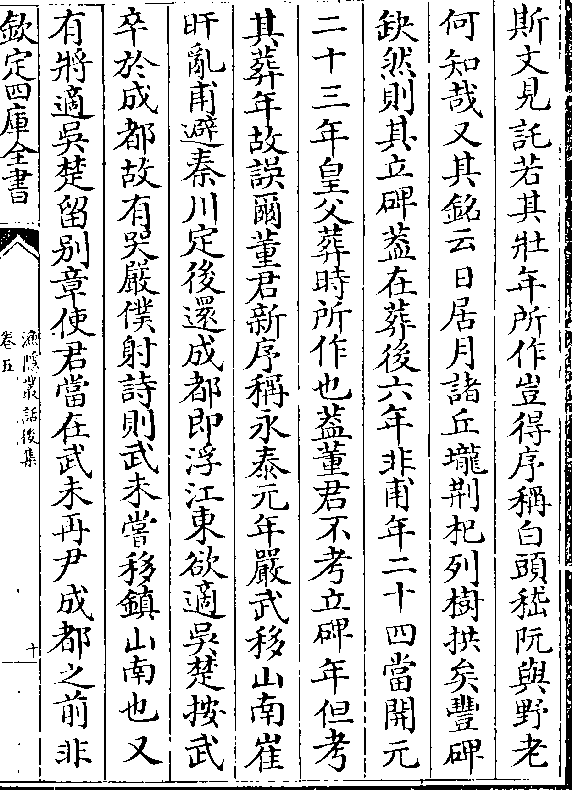 斯文見託若其壯年所作豈得序稱白頭嵇阮與野老
何知哉又其銘云日居月諸丘壠荆杞列樹拱矣豐碑
缺然則其立碑葢在葬後六年非甫年二十四當開元
二十三年皇父葬時所作也葢董君不考立碑年但考
其葬年故誤爾董君新序稱永泰元年嚴武移山南崔
旰亂甫避秦川定後還成都即浮江東欲適吳楚按武
卒於成都故有哭嚴僕射詩則武未嘗移鎮山南也又
有將適吳楚留别章使君當在武未再尹成都之前非
欽定四庫全書
漁隱叢話後集
卷五
十